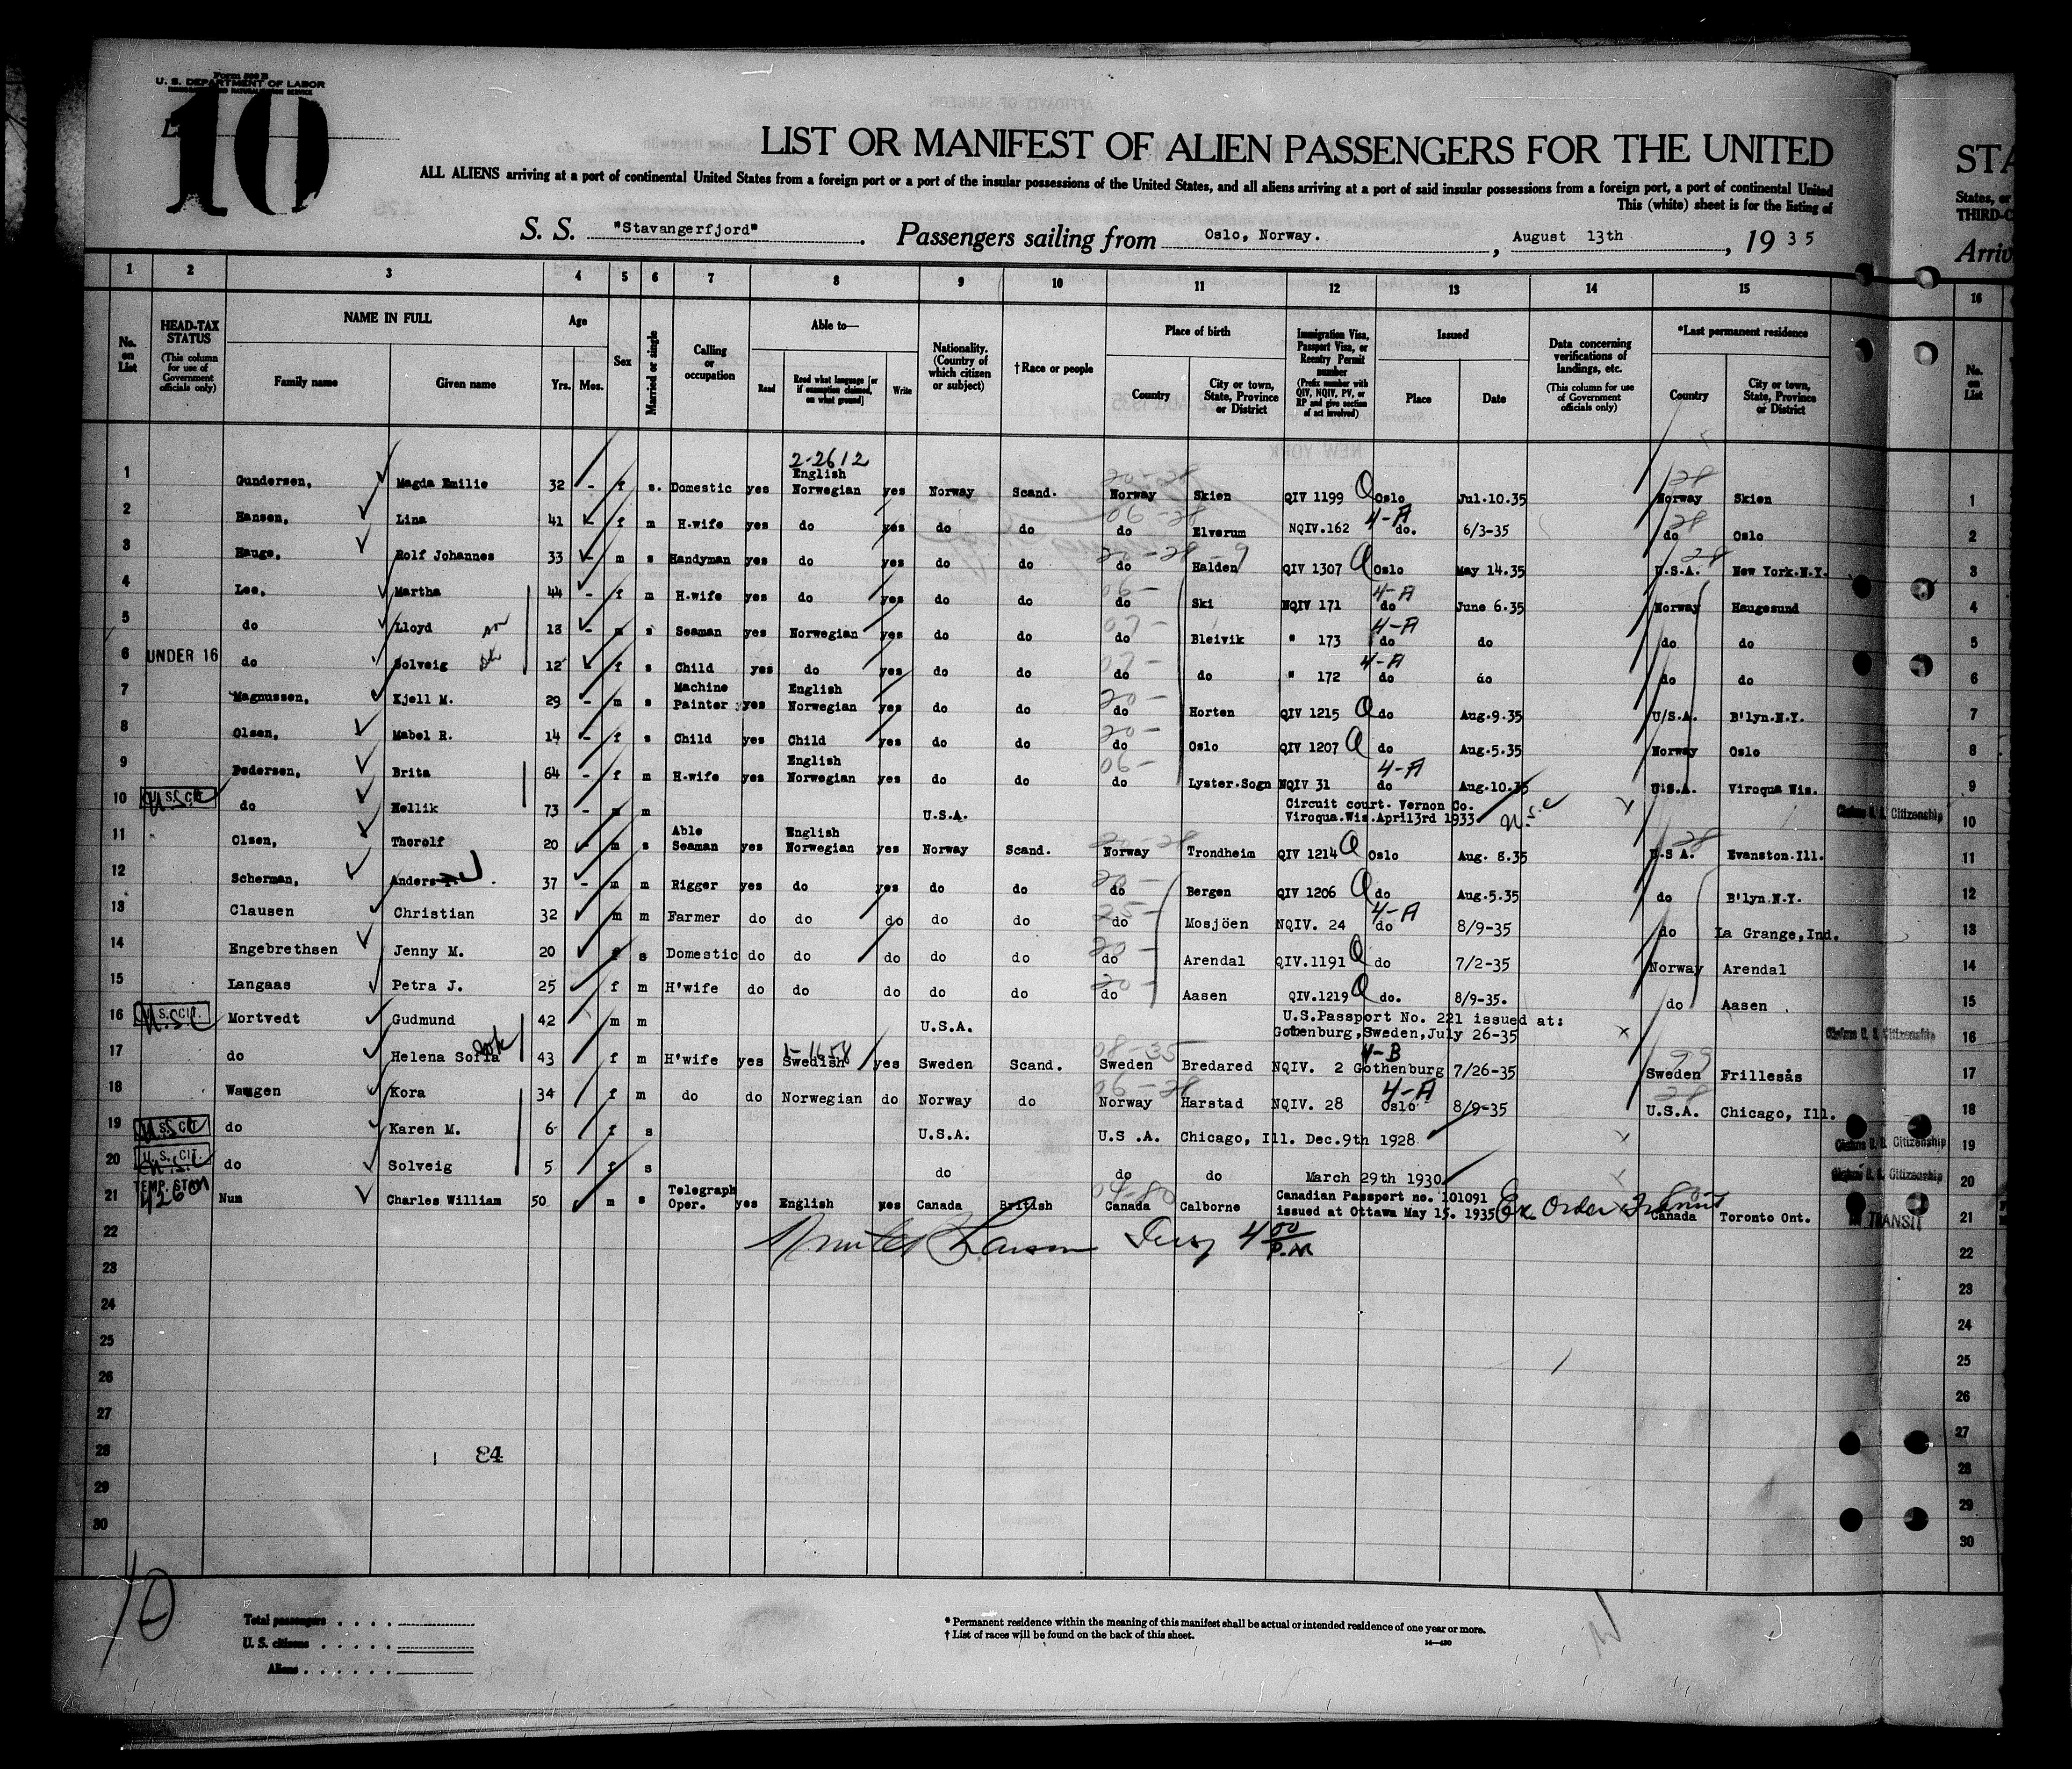 Form 500 B
U. S. DEPARTMENT OF LABOR
10
LIST OR MANIFEST OF ALIEN PASSENGERS FOR THE UNITED
STA
ALL ALIENS arriving at a port of continental United States from a foreign port or a port of the insular possessions of the United States, and all aliens arriving at a port of said insular possessions from a foreign port, a port of continental United
States, or
This (white) sheet is for the listing of
THIRD-C
S. S. "Stavangerfjord". Passengers sailing from Oslo, Norway., August 13th, 1935
Arriv
1 2 3 4 5 6 7 8 9 10 11 12 13 14 15 16
No. on List
HEAD-TAX STATUS (This column for use of Government officials only)
NAME IN FULL
Family name Given name
Age Yrs. Mos.
Sex
Married or single
Calling or occupation
Able to—
Read Read what language [or if exemption claimed, on what ground] Write
Nationality. (Country of which citizen or subject)
†Race or people
Place of birth
Country City or town, State, Province or District
Immigration Visa, Passport Visa, or Reentry Permit number (Prefix number with QIV, NQIV, PV, or RP and give section of act involved)
Issued
Place Date
Data concerning verifications of landings, etc. (This column for use of Government officials only)
*Last permanent residence
Country City or town, State, Province or District
No. on List
2-2612
1 Gundersen, Magda Emilie 32 - f s. Domestic yes English Norwegian yes Norway Scand. 20-28 Norway Skien QIV 1199 Oslo Jul.10.35 28 Norway Skien 1
2 Hansen, Lina 41 f m H.wife yes do yes do do 06-28 do Elverum NQIV.162 4-A do. 6/3-35 28 do Oslo 2
3 Hauge, Rolf Johannes 33 - m s Handyman yes do yes do do 20-28-9 do Halden QIV 1307 Oslo May 14.35 28 U.S.A. New York.N.Y. 3
4 Lee, Martha 44 - f m H.wife yes do yes do do 06- do Ski NQIV 171 4-A do June 6.35 Norway Haugesund 4
5 do Lloyd 18 - m s Seaman yes Norwegian yes do do 07- do Bleivik " 173 4-A do do do do 5
6 UNDER 16 do Solveig 12 f s Child yes do yes do do 07- do do " 172 4-A do do do do 6
7 Magnussen, Kjell M. 29 - m s Machine Painter yes English Norwegian yes do do 20- do Horten QIV 1215 do Aug.9.35 U/S.A. B'lyn.N.Y. 7
8 Olsen, Mabel R. 14 - f s Child yes Child yes do do 20- do Oslo QIV 1207 do Aug.5.35 Norway Oslo 8
9 Pedersen, Brita 64 - f m H.wife yes English Norwegian yes do do 06- do Lyster.Sogn NQIV 31 4-A do Aug.10.35 U.S.A. Viroqua Wis. 9
10 U. S. CIT. do Hellik 73 - m m U.S.A. Circuit court. Vernon Co. Viroqua.Wis.April3rd 1933 Claims U. S. Citizenship 10
11 Olsen, Thorolf 20 - m s Able Seaman yes English Norwegian yes Norway Scand. 20-28 Norway Trondheim QIV 1214 Oslo Aug. 8.35 28 U.S A. Evanston.Ill. 11
12 Scherman, Anders J 37 - m m Rigger yes do yes do do 20- do Bergen QIV 1206 do Aug.5.35 do B'lyn.N.Y. 12
13 Clausen Christian 32 m m Farmer do do do do do 25- do Mosjöen NQIV. 24 4-A do 8/9-35 do La Grange,Ind. 13
14 Engebrethsen Jenny M. 20 f s Domestic do do do do do 20- do Arendal QIV.1191 do 7/2-35 Norway Arendal 14
15 Langaas Petra J. 25 f m H'wife do do do do do 20- do Aasen QIV.1219 do. 8/9-35. do Aasen 15
16 U. S. CIT. Mortvedt Gudmund 42 m m U.S.A. U.S.Passport No. 221 issued at: Gotenburg,Sweden,July 26-35 Claims U. S. Citizenship 16
17 do Helena Sofia 43 f m H'wife yes Swedish yes Sweden Scand. 08-35 Sweden Bredared NQIV. 2 4-B Gothenburg 7/26-35 Sweden Frillesås 17
18 Wangen Kora 34 f m do do Norwegian do Norway do 06-28 Norway Harstad NQIV. 28 4-A Oslo 8/9-35 28 U.S.A. Chicago, Ill. 18
19 U. S. CIT. do Karen M. 6 f s U.S.A. U.S .A. Chicago, Ill. Dec.9th 1928 Claims U. S. Citizenship 19
20 U. S. CIT. do Solveig 5 f s do do do March 29th 1930 Claims U. S. Citizenship 20
21 TEMP. STAY Nun Charles William 50 m s Telegraph Oper. yes English yes Canada British 04-80 Canada Calborne Canadian Passport no. 101091 issued at Ottawa May 15. 1935 Ex. Order Transit Canada Toronto Ont. IN TRANSIT 21
22 4 00 P.M 22
23 23
24 24
25 25
26 26
27 27
28 84 28
29 29
30 30
10
Total passengers . . . .
U. S. citizens . . . . .
Aliens . . . . . .
* Permanent residence within the meaning of this manifest shall be actual or intended residence of one year or more.
† List of races will be found on the back of this sheet.
14—430